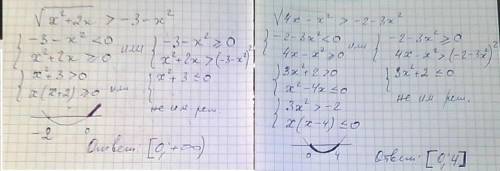 √x²+2x > -3-x²
{ -3-x² < 0
x²+2x ≥ 0 или { -3-x² ≥ 0
x²+2x > (-3-x²)²
{ x²+3 > 0
x(x+2) ≥ 0 или { x²+3 ≤ 0
не им. реш.
-2 0
Ответ: [0; +∞)
√4x-x² > -2-3x²
{ -2-3x² < 0
4x-x² ≥ 0 или { -2-3x² ≥ 0
4x-x² > (-2-3x²)²
{ 3x²+2 > 0
x²-4x ≤ 0 { 3x²+2 ≤ 0
не им. реш.
{ 3x² > -2
x(x-4) ≤ 0
0 4
Ответ: [0; 4]